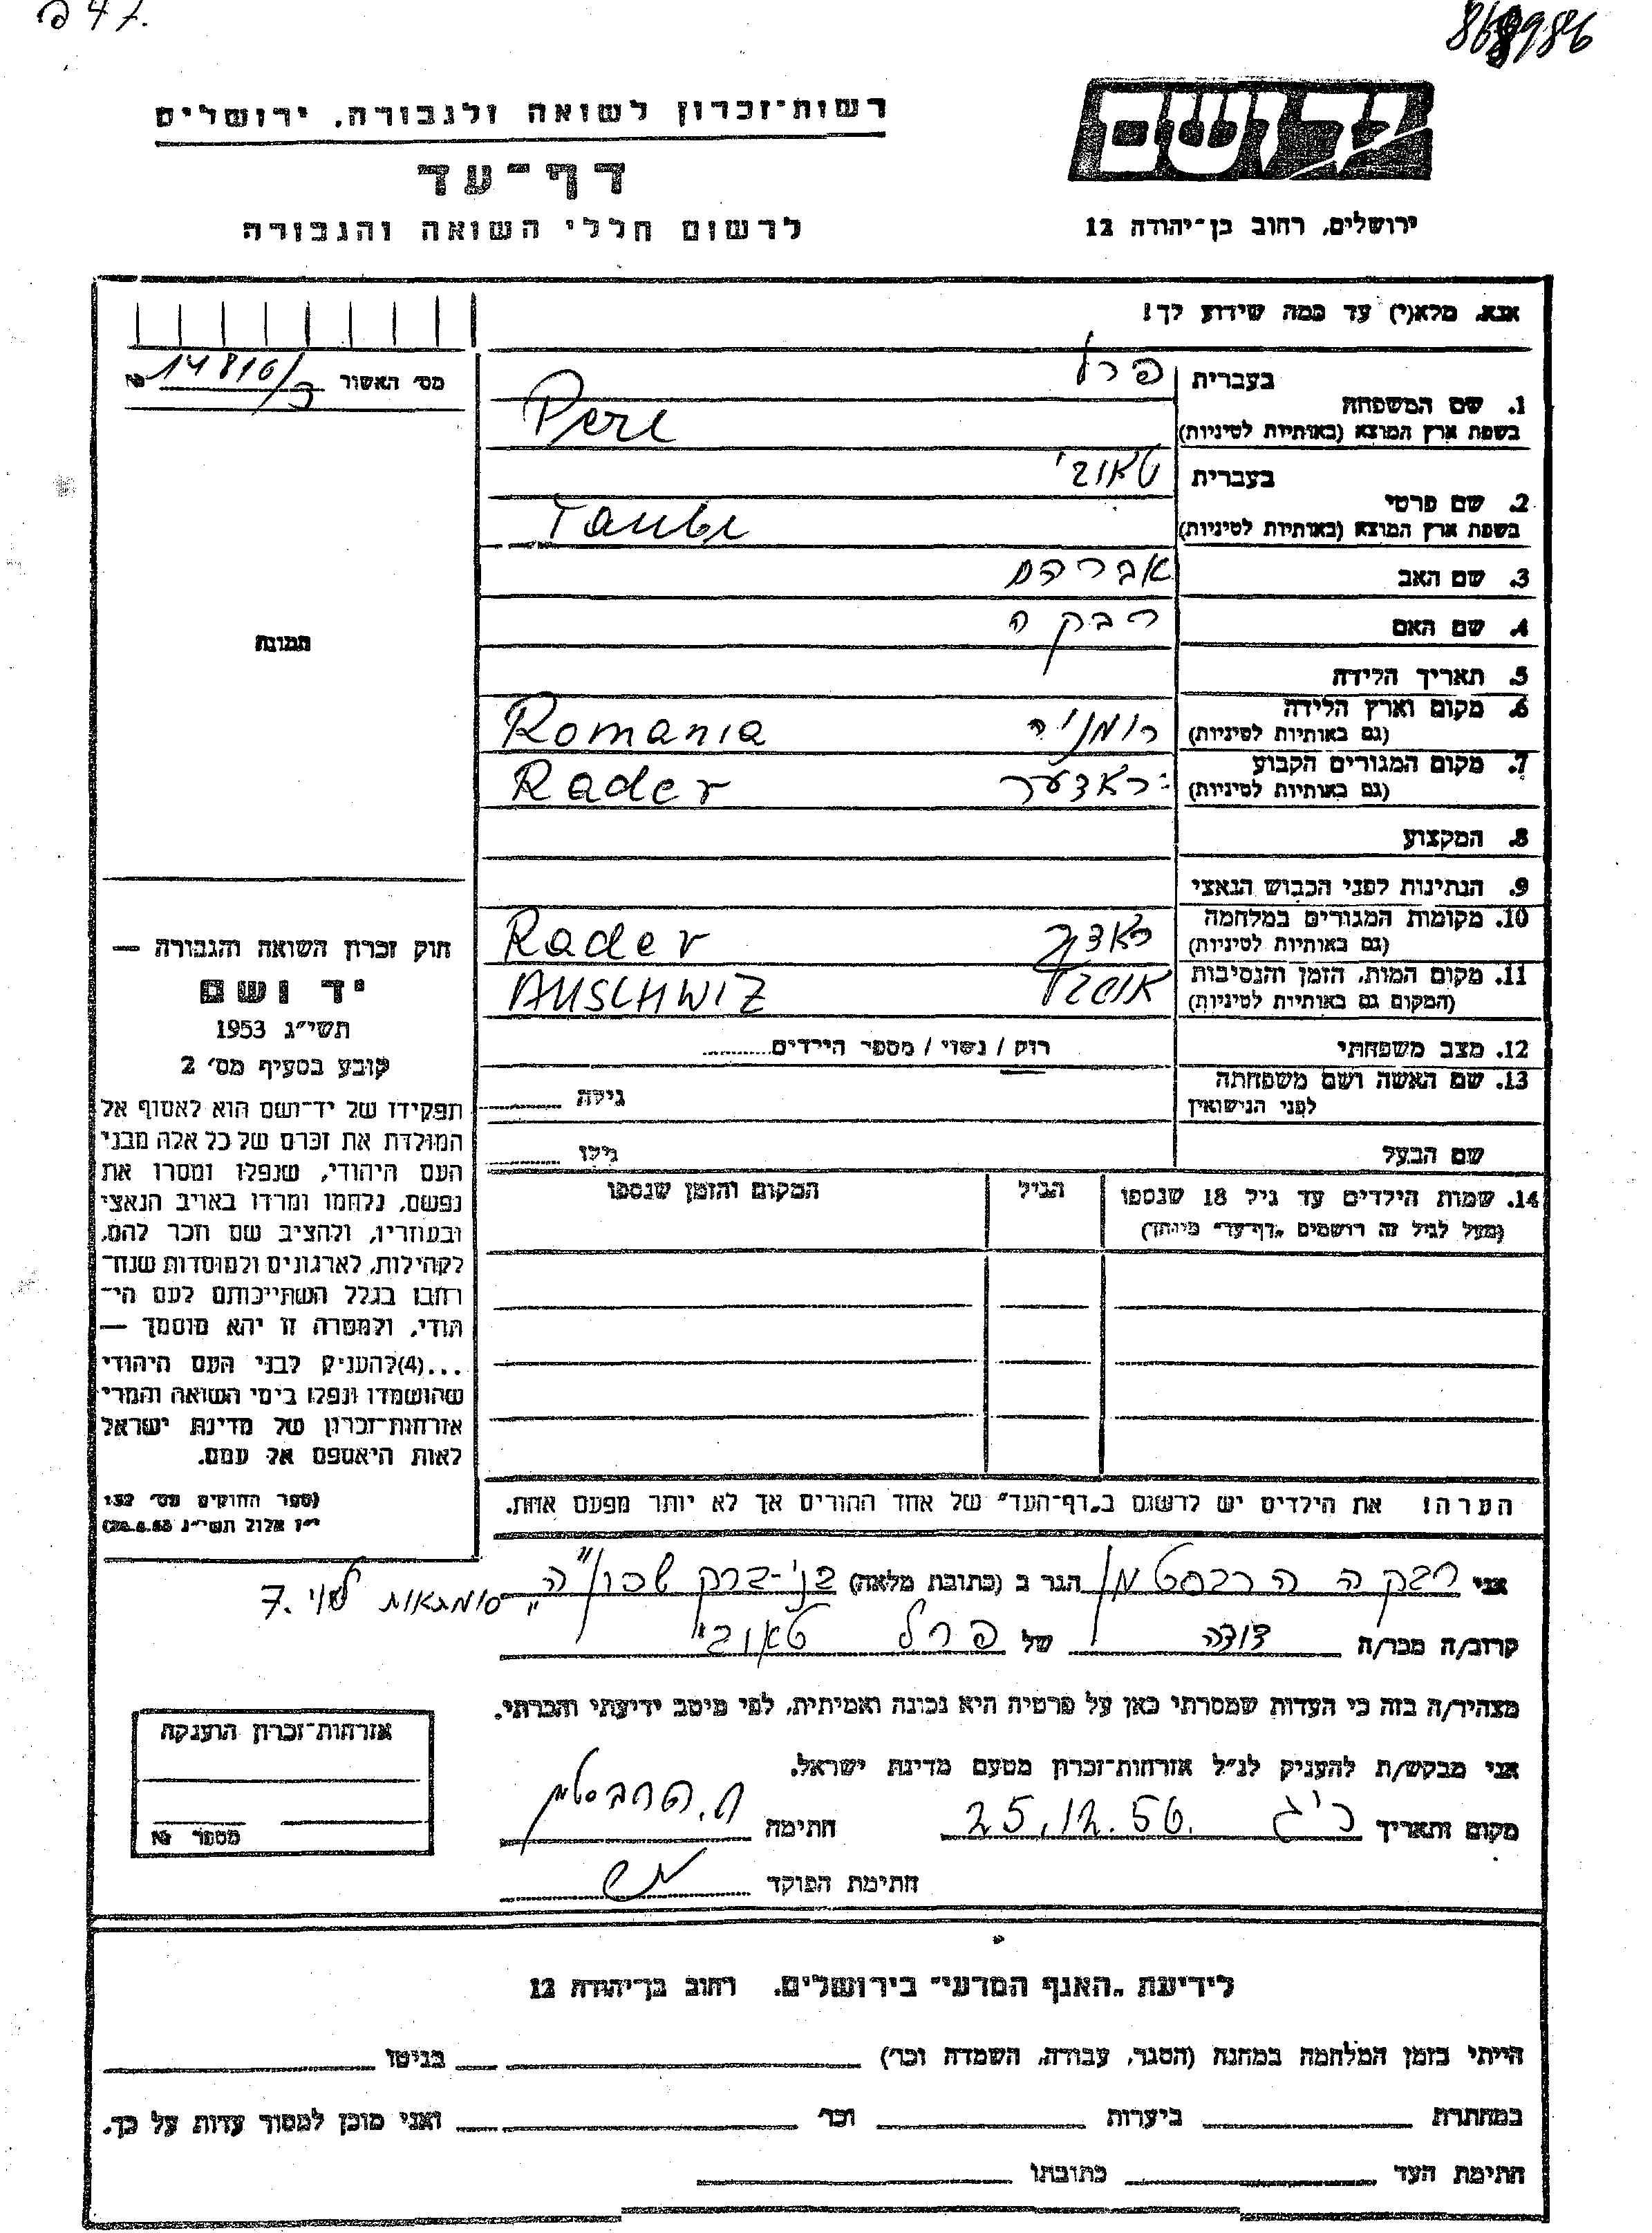 47.
868986
רשות־זכרון לשואה ולגבורה, ירושלים
דף־עד
לרשום חללי השואה והגבורה
יד ושם
ירושלים, רחוב בן־יהודה 12
אנא, מלא(י) עד כמה שידוע לך!
מס׳ האשור № 14816/
1. שם המשפחה
בעברית פרל
בשפת ארץ המוצא (באותיות לטיניות) Perl
2. שם פרטי
בעברית טאובי
בשפת ארץ המוצא (באותיות לטיניות) Taubi
3. שם האב אברהם
4. שם האם רבקה
5. תאריך הלידה
6. מקום וארץ הלידה רומניה Romania
(גם באותיות לטיניות)
7. מקום המגורים הקבוע ראדער Rader
(גם באותיות לטיניות)
8. המקצוע
9. הנתינות לפני הכבוש הנאצי
10. מקומות המגורים במלחמה Rader
(גם באותיות לטיניות)
11. מקום המות, הזמן והנסיבות AUSCHWIZ
(המקום גם באותיות לטיניות)
12. מצב משפחתי רוק / נשוי / מספר הילדים
13. שם האשה ושם משפחתה
לפני הנישואין גילה
שם הבעל גילו
14. שמות הילדים עד גיל 18 שנספו הגיל המקום והזמן שנספו
(מעל לגיל זה רושמים „דף־עד״ מיוחד)
הערה! את הילדים יש לרשום ב„דף־העד״ של אחד ההורים אך לא יותר מפעם אחת.
תמונה
חוק זכרון השואה והגבורה —
יד ושם
תשי״ג 1953
קובע בסעיף מס׳ 2
תפקידו של יד־ושם הוא לאסוף אל
המולדת את זכרם של כל אלה מבני
העם היהודי, שנפלו ומסרו את
נפשם, נלחמו ומרדו באויב הנאצי
ובעוזריו, ולהציב שם וזכר להם,
לקהילות, לארגונים ולמוסדות שנח־
רחבו בגלל השתייכותם לעם הי־
הודי, ולמטרה זו יהא מוסמך —
...(4)להעניק לבני העם היהודי
שהושמדו ונפלו בימי השואה והמרי
אזרחות־זכרון של מדינת ישראל
לאות היאספם אל עמם.
(ספר החוקים מס׳ 132
י״ז אלול תשי״ג 28.8.53)
אני רבקה הרבסטמן הגר ב (כתובת מלאה) בני-ברק שכון „ה״
7.
קרוב/ה מכר/ה דודה של פרל טאובי
מצהיר/ה בזה כי העדות שמסרתי כאן על פרטיה היא נכונה ואמיתית, לפי מיטב ידיעתי והכרתי.
אני מבקש/ת להעניק לנ״ל אזרחות־זכרון מטעם מדינת ישראל.
מקום ותאריך 25.12.56 חתימה
חתימת הפוקד
אזרחות־זכרון הוענקה
מספר №
לידיעת „האגף המדעי״ בירושלים, רחוב בן־יהודה 12
הייתי בזמן המלחמה במחנה (הסגר, עבודה, השמדה וכו׳) בגיטו
במחתרת ביערות וכו׳ ואני מוכן למסור עדות על כך.
חתימת העד כתובתו